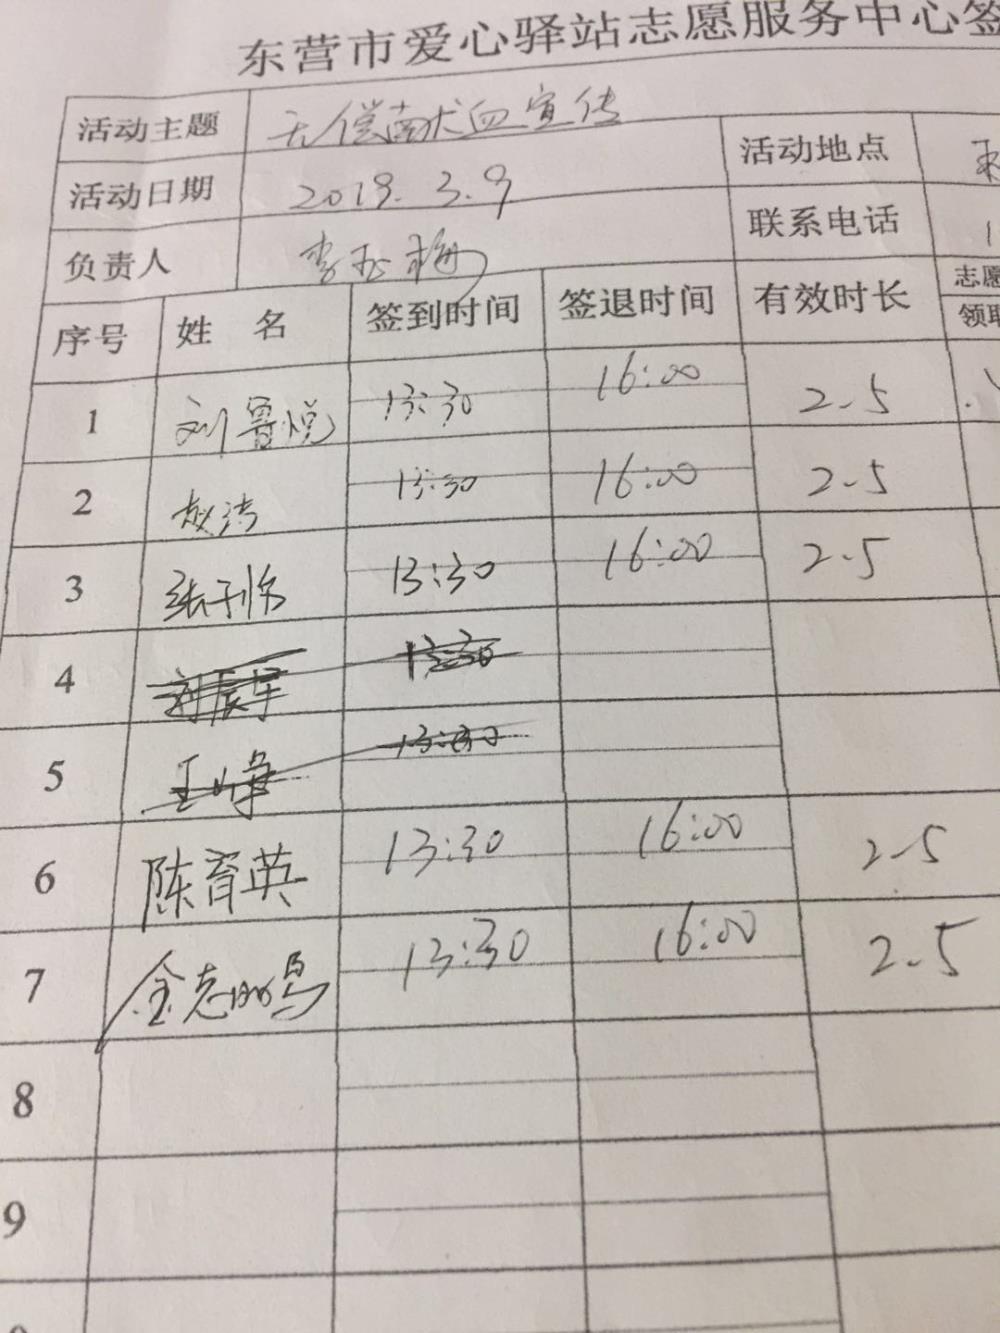 东营市爱心驿站志愿服务中心签
活动主题 无偿献血宣传
活动日期 2019.3.9 活动地点
负责人 李玉梅 联系电话 1
序号 姓 名 签到时间 签退时间 有效时长 志愿
领取
1 刘鲁悦 13:30 16:00 2.5
2 赵洁 13:30 16:00 2.5
3 张子怡 13:30 16:00 2.5
4 刘辰宇 13:30
5 王峥 13:30
6 陈育英 13:30 16:00 2.5
7 金志鹏 13:30 16:00 2.5
8
9